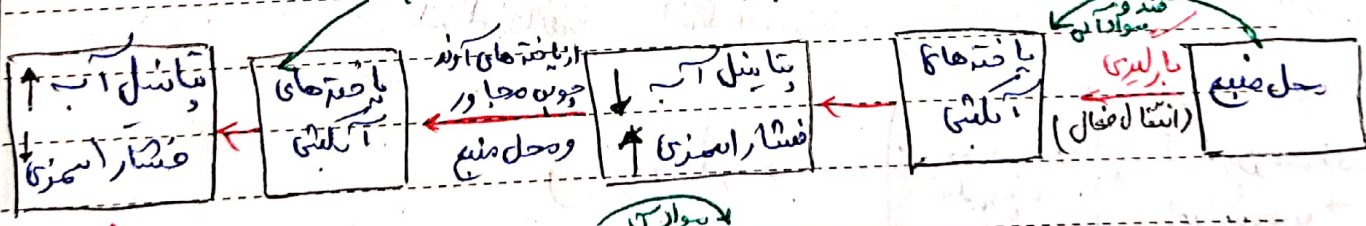 قند و
مواد آلی
محل منبع
بارگیری
(انتقال فعال)
یاخته‌های
آبکشی
پتانسیل آب ↓
فشار اسمزی ↑
از یاخته‌های آوند
چوبی مجاور
و محل منبع
یاخته‌های
آبکشی
پتانسیل آب ↑
فشار اسمزی ↓
مواد آ